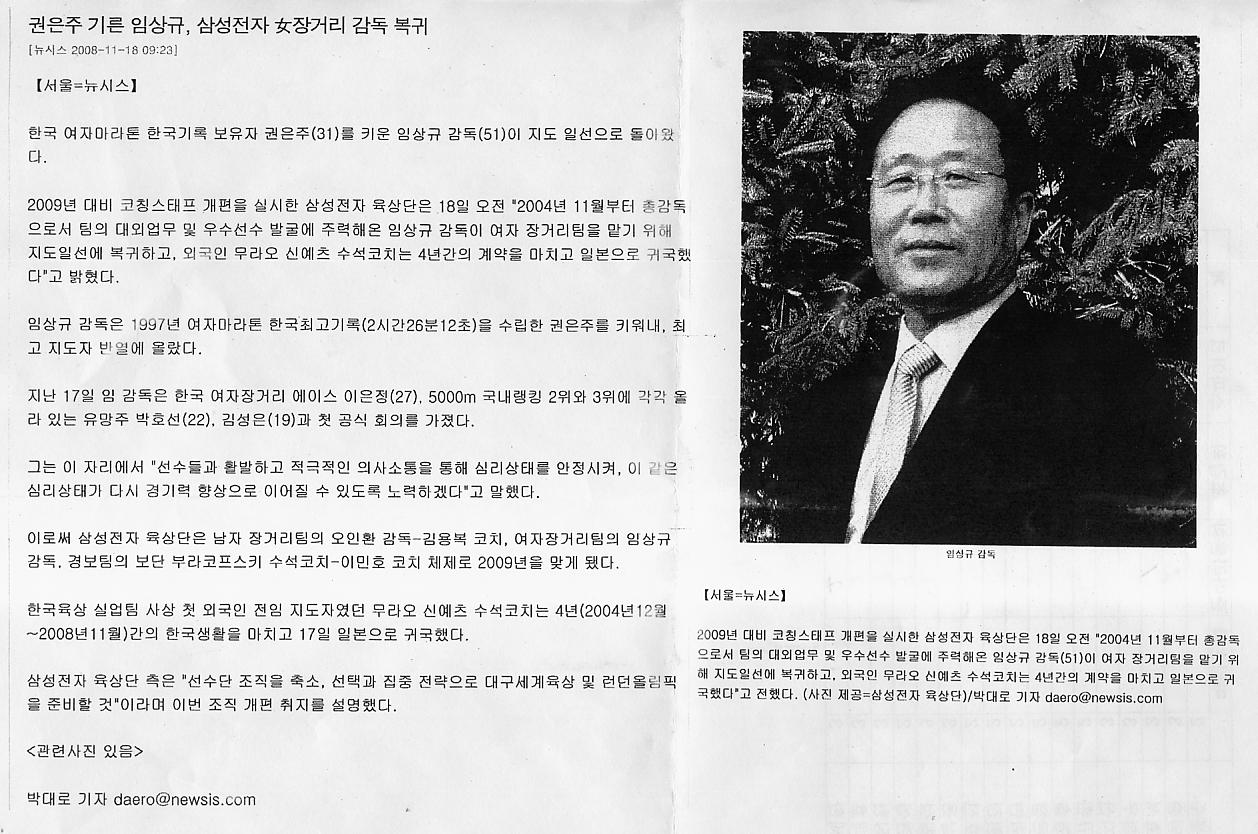 권은주 기른 임상규, 삼성전자 女장거리 감독 복귀
[뉴시스 2008-11-18 09:23]
【서울=뉴시스】
한국 여자마라톤 한국기록 보유자 권은주(31)를 키운 임상규 감독(51)이 지도 일선으로 돌아왔
다.
2009년 대비 코칭스태프 개편을 실시한 삼성전자 육상단은 18일 오전 "2004년 11월부터 총감독
으로서 팀의 대외업무 및 우수선수 발굴에 주력해온 임상규 감독이 여자 장거리팀을 맡기 위해
지도일선에 복귀하고, 외국인 무라오 신예츠 수석코치는 4년간의 계약을 마치고 일본으로 귀국했
다"고 밝혔다.
임상규 감독은 1997년 여자마라톤 한국최고기록(2시간26분12초)을 수립한 권은주를 키워내, 최
고 지도자 반열에 올랐다.
지난 17일 임 감독은 한국 여자장거리 에이스 이은정(27), 5000m 국내랭킹 2위와 3위에 각각 올
라 있는 유망주 박호선(22), 김성은(19)과 첫 공식 회의를 가졌다.
그는 이 자리에서 "선수들과 활발하고 적극적인 의사소통을 통해 심리상태를 안정시켜, 이 같은
심리상태가 다시 경기력 향상으로 이어질 수 있도록 노력하겠다"고 말했다.
이로써 삼성전자 육상단은 남자 장거리팀의 오인환 감독-김용복 코치, 여자장거리팀의 임상규
감독, 경보팀의 보단 부라코프스키 수석코치-이민호 코치 체제로 2009년을 맞게 됐다.
한국육상 실업팀 사상 첫 외국인 전임 지도자였던 무라오 신예츠 수석코치는 4년(2004년12월
~2008년11월)간의 한국생활을 마치고 17일 일본으로 귀국했다.
삼성전자 육상단 측은 "선수단 조직을 축소, 선택과 집중 전략으로 대구세계육상 및 런던올림픽
을 준비할 것"이라며 이번 조직 개편 취지를 설명했다.
<관련사진 있음>
박대로 기자 daero@newsis.com
임상규 감독
【서울=뉴시스】
2009년 대비 코칭스태프 개편을 실시한 삼성전자 육상단은 18일 오전 "2004년 11월부터 총감독
으로서 팀의 대외업무 및 우수선수 발굴에 주력해온 임상규 감독(51)이 여자 장거리팀을 맡기 위
해 지도일선에 복귀하고, 외국인 무라오 신예츠 수석코치는 4년간의 계약을 마치고 일본으로 귀
국했다"고 전했다. (사진 제공=삼성전자 육상단)/박대로 기자 daero@newsis.com